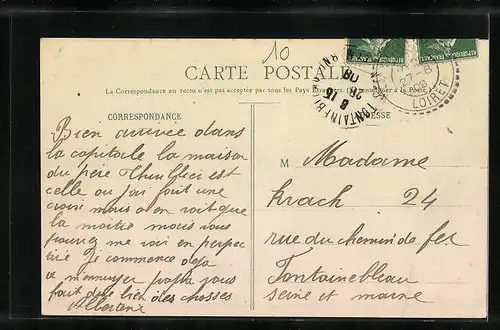 10
CARTE POSTALE
La Correspondance au recto n'est pas acceptée par tous les Pays Étrangers. (Se renseigner à la Poste.)
CORRESPONDANCE
ADRESSE
27-8
08
LOIRET
FONTAINEBLEAU
8 15
28
08
Bien arrivée dans
la capitale la maison
du père est
celle ou jai fait une
croix mais on en voit que
la moitié mais vous
pouvez me voir en perspec
tive Je commence deja
a m'ennuyer pour vous
fait que bien des choses
M Madame
Krach 24
rue du chemin de fer
Fontainebleau
seine et marne